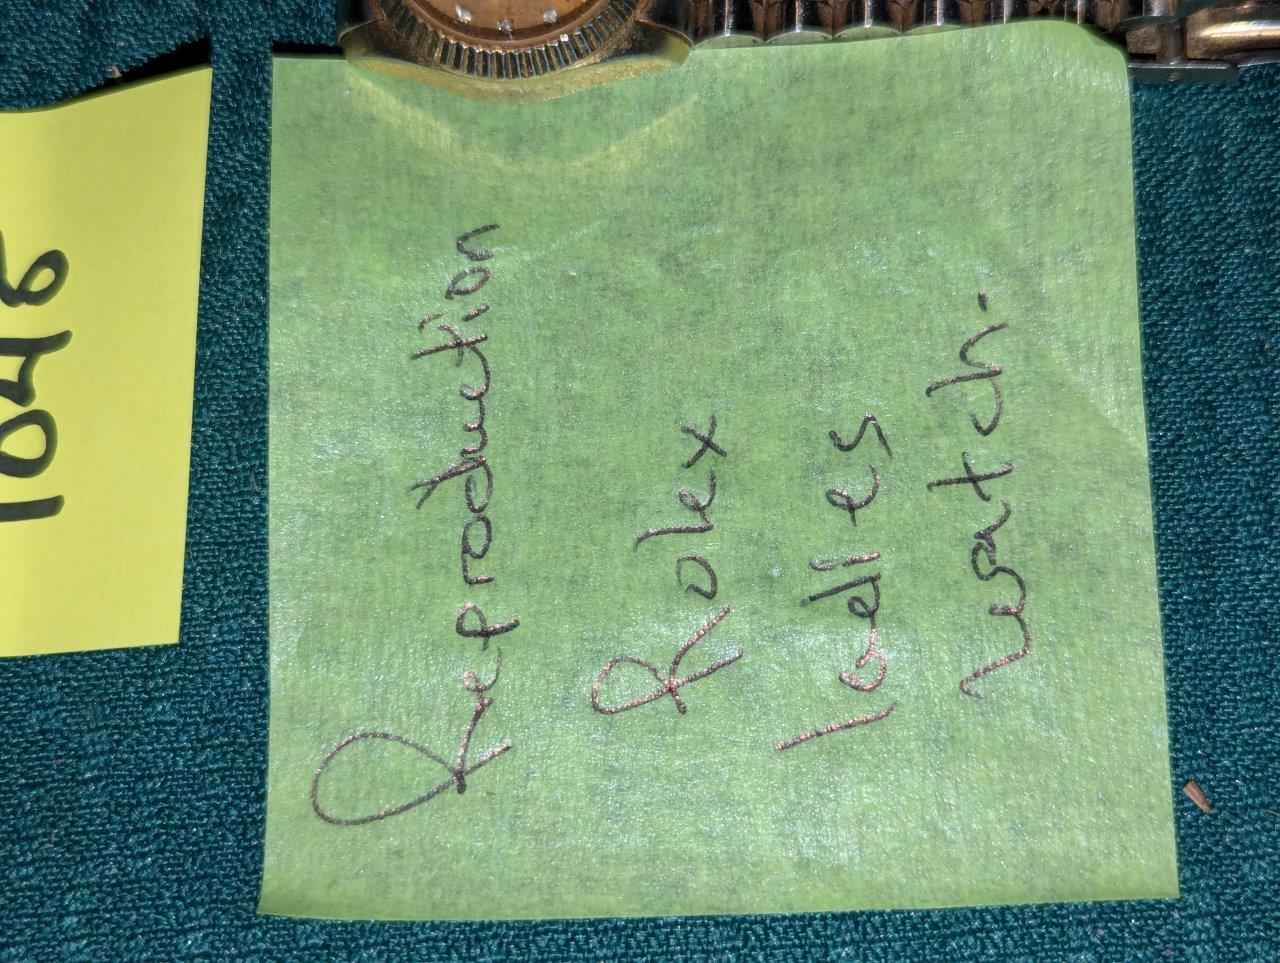 1046
Reproduction
Rolex
ladies
watch.